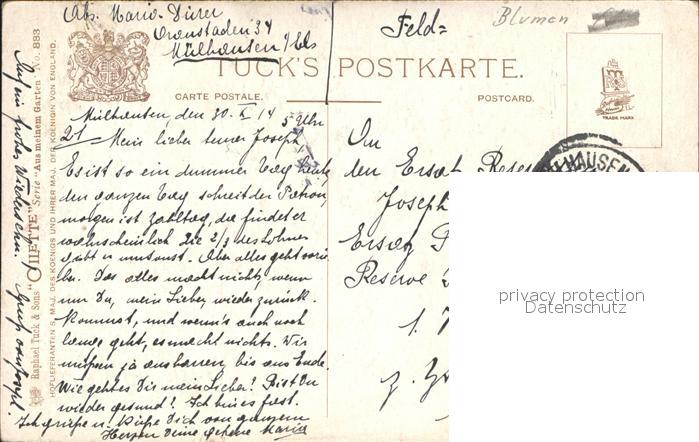 Abs. Maria Dürer
34
Mülhausen i/Els
Feld=
Blumen
TUCK'S POSTKARTE.
CARTE POSTALE.
POSTCARD.
TRADE MARK
Raphael Tuck & Sons' "OILETTE" Serie "Aus meinem Garten" No. 883
HOFLIEFERANTEN S. MAJ. DES KOENIGS UND IHRER MAJ. DER KOENIGIN VON ENGLAND.
Mülhausen, den 30. X 14 5 Uhr
21 Mein lieber Joseph,
Es ist so ein dummer Tag heute,
den ganzen Tag schreit der Patron,
morgen ist Zahltag, da findet er
wahrscheinlich die 2/3 des Lohnes
umsonst. Aber alles geht vorü-
ber. Das alles macht nichts, wenn
nur Du, mein Lieber, wieder zurück-
kommst, und wenn's auch noch
lange geht, es macht nichts. Wir
müssen ja ausharren, bis ans Ende.
Wie geht es Dir mein Lieber! Bist Du
wieder gesund! Ich bin es fast.
Ich grüße u. küße Dich von ganzem
Herzen Deine Maria
Auf ein frohes Wiedersehn.
An
den Ersatz Reser
Joseph
Ersatz
Reserve
1.
MÜLHAUSEN
privacy protection
Datenschutz